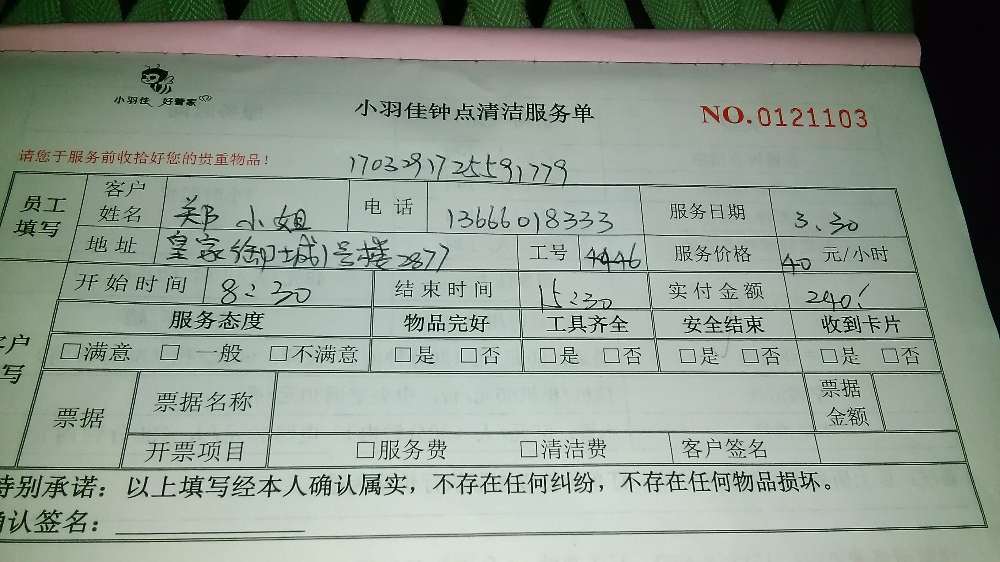 小羽佳 好管家
小羽佳钟点清洁服务单
NO.0121103
请您于服务前收拾好您的贵重物品!
1703291725591779
员工填写 客户姓名 郑小姐 电话 13666018333 服务日期 3.30
地址 皇家御城1号楼2877 工号 4446 服务价格 40 元/小时
开始时间 8:30 结束时间 15:30 实付金额 240
服务态度 物品完好 工具齐全 安全结束 收到卡片
□满意 □一般 □不满意 □是 □否 □是 □否 □是 □否 □是 □否
票据 票据名称 票据金额
开票项目 □服务费 □清洁费 客户签名
特别承诺：以上填写经本人确认属实，不存在任何纠纷，不存在任何物品损坏。
确认签名：